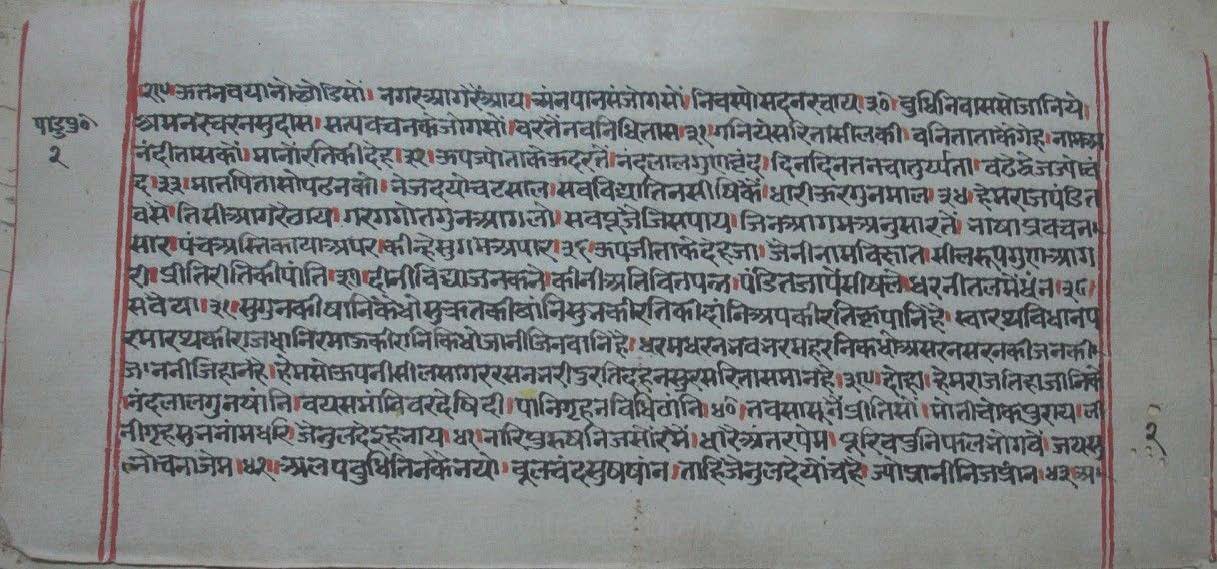 ।२९। ऊतनवयानोछोडिसों। नगरआगरैआय। अंनपानसंजोगसौं। निवस्पोसदनरचाय।३०। बुधिनिवाससोजानिये।
पाड़पु०
अमनरचरनसुदास। सत्यवचनकेजोगसों। वरतैनवनिधितास।३१। गनियेसरितासीलकी। वनिताताकेगेह। नामअ
२
नंदीतासकौ। मानौरतिकीदेह।३२। ऊपज्योताकेऊदरतें। नंदलालगुणवृंद। दिनदिनतनचातुर्य्यता। वढेद्वैजज्योंचं
द।३३। मातपितासोपढनको। नेजदयोचटसाल। सवविद्यातिनसीषिकें। धारीऊरगुनमाल।३४। हेमराजपंडित
वसै। तिसीआगरैठाय। गरगगोतगुनआगलो। सवपूजैजिसपाय। जिनआगमअनुसारतें। नाषाप्रवचन
सार। पंचअस्तिकायाअपर। कीन्हेसुगमअपार।३६। ऊपजीताकेदेहजा। जैनीनामविख्यात। सीलरूपगुणआग
री। प्रीतिरीतिकीपांति।३७। दीनीविद्याजनकनै। कीनीअतिवितपन्न। पंडितजापैंसीषलें। धरनीतलमेंधंन।३८।
सवैया।३१। सुगुनकीषानिकिधौंसुकृतकीवांनिसुनकीरतिकीदांनिअपकीरतिकृपानिहै। स्वारथविधानप
रमारथकीराजधानिरमाऊकीरानिकिधोंजानीजिनवानिहै। धरमधरननवनरमहरनिकधोंअसरनसरनकीजनकी
ज। हेमसोंऊपनीसीलसागररसननरीपुरतिदहनसुरसरितासमानहै।३९। दोहा। हेमराजतिहाजानिकें
नंदलालगुनषांनि। वयसमानिवरदेषिदी। पानिगृहनविधिवांनि।४०। तवसासूनैंप्रीतिसौं। मोतीचोकपुराय। ली
नीगृहसुननामधरि। जैनुलदेइहनाय।४१। नारिपुरुषर्षानिजसोंरमें। धारैअंतरपेम। पूरिवपुनिफलनोगवै। जयसु
लोचनाजेम।४२। अलपवुधितिनकेनयो। बूलचंदसुषषांन। ताहिजैनुलदेयौंचहै। ज्योप्रानीनिजप्रांन।४३। अ
२